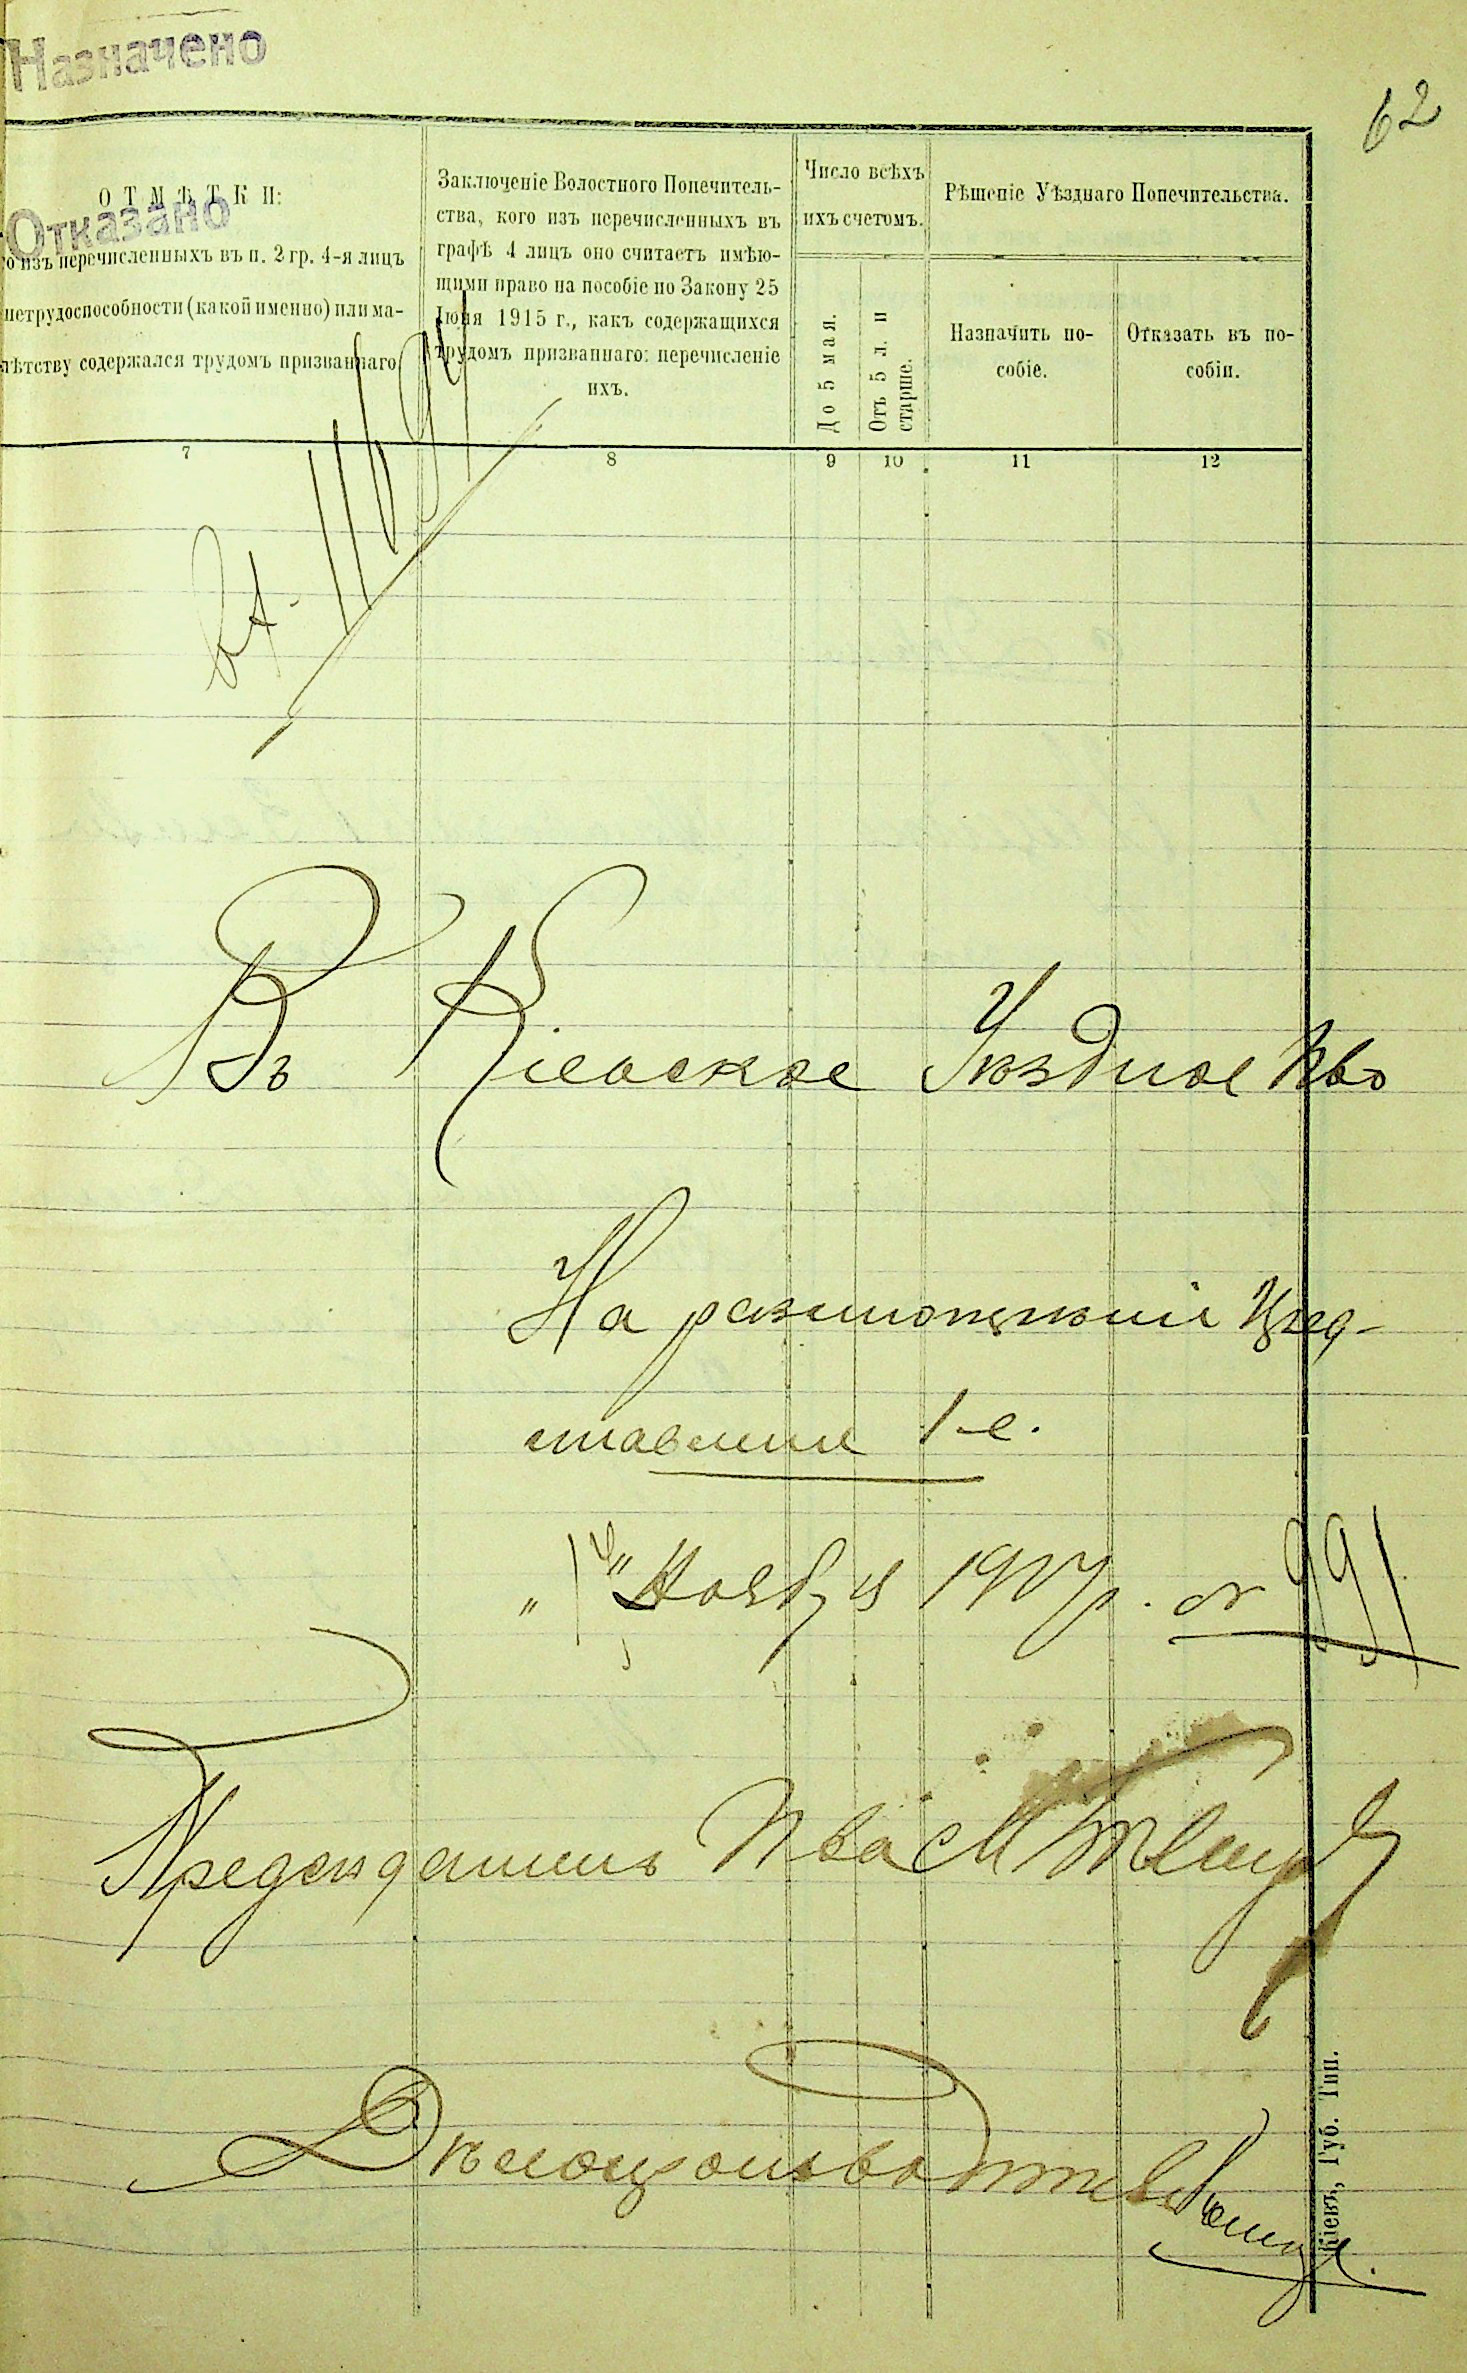 Назначено
62
ОТМѢТКИ:
Отказано
о изъ перечисленныхъ въ п. 2 гр. 4-я лицъ
нетрудоспособности (какой именно) или ма-
лѣтству содержался трудомъ призваннаго
Заключеніе Волостного Попечитель-
ства, кого изъ перечисленныхъ въ
графѣ 4 лицъ оно считаетъ имѣю-
щими право на пособіе по Закону 25
Іюня 1915 г., какъ содержащихся
трудомъ призваннаго: перечисленіе
ихъ.
Число всѣхъ
ихъ счетомъ.
До 5 мая.
Отъ 5 л. и
старше.
Рѣшеніе Уѣзднаго Попечительства.
Назначить по-
собіе.
Отказать въ по-
собіи.
7 8 9 10 11 12
Въ Кіевское Уѣздное П-во
На разсмотрѣніе Пред-
ставленіе 1-е.
Ноября 1917 г. № 991
Предсѣдатель П-ва
Дѣлопроизвод
Кіевъ, Губ. Тип.